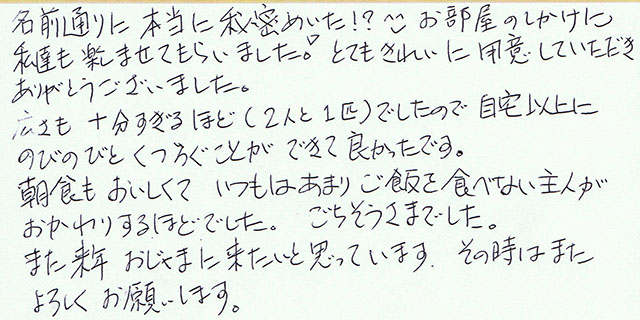 名前通りに本当に秘密めいた!? お部屋のしかけに
私達も楽しませてもらいました。♡ とてもきれいに用意していただき
ありがとうございました。
広さも十分すぎるほど(2人と1匹)でしたので自宅以上に
のびのびとくつろぐことができて良かったです。
朝食もおいしくていつもはあまりご飯を食べない主人が
おかわりするほどでした。ごちそうさまでした。
また来年おじゃまに来たいと思っています。その時はまた
よろしくお願いします。